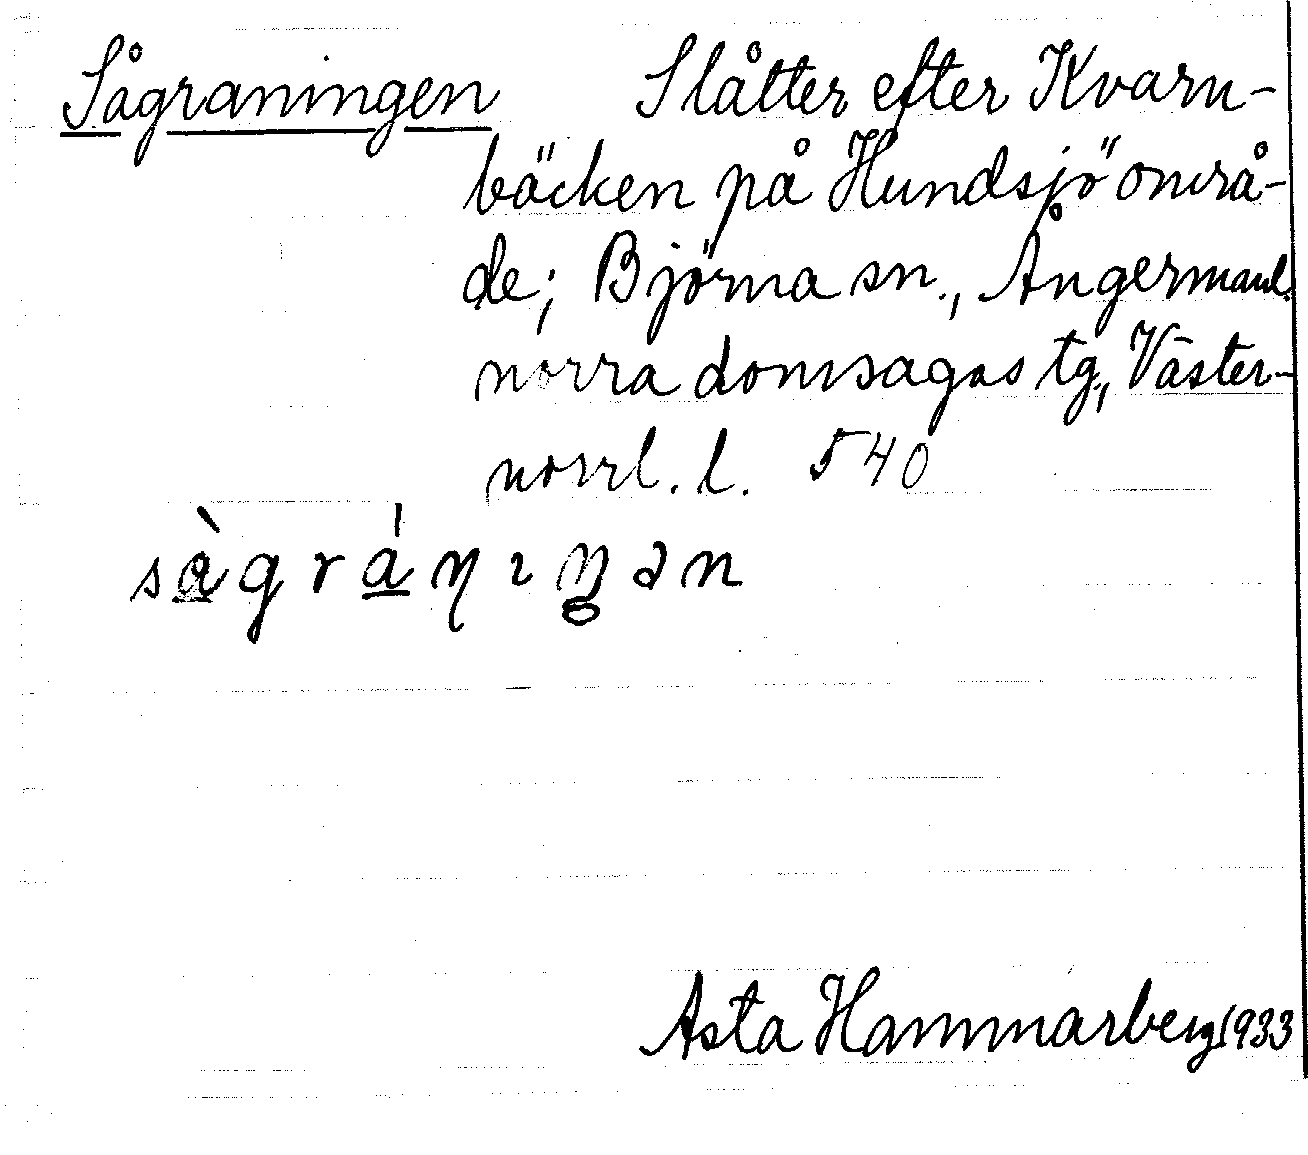 Sågraningen Slåtter efter Kvarn-
bäcken på Hundsjö områ-
de; Björna sn., Ångermanl.
norra domsagas tg., Väster-
norrl. l. 540
sàgráŋıŋən
Asta Hammarberg 1933